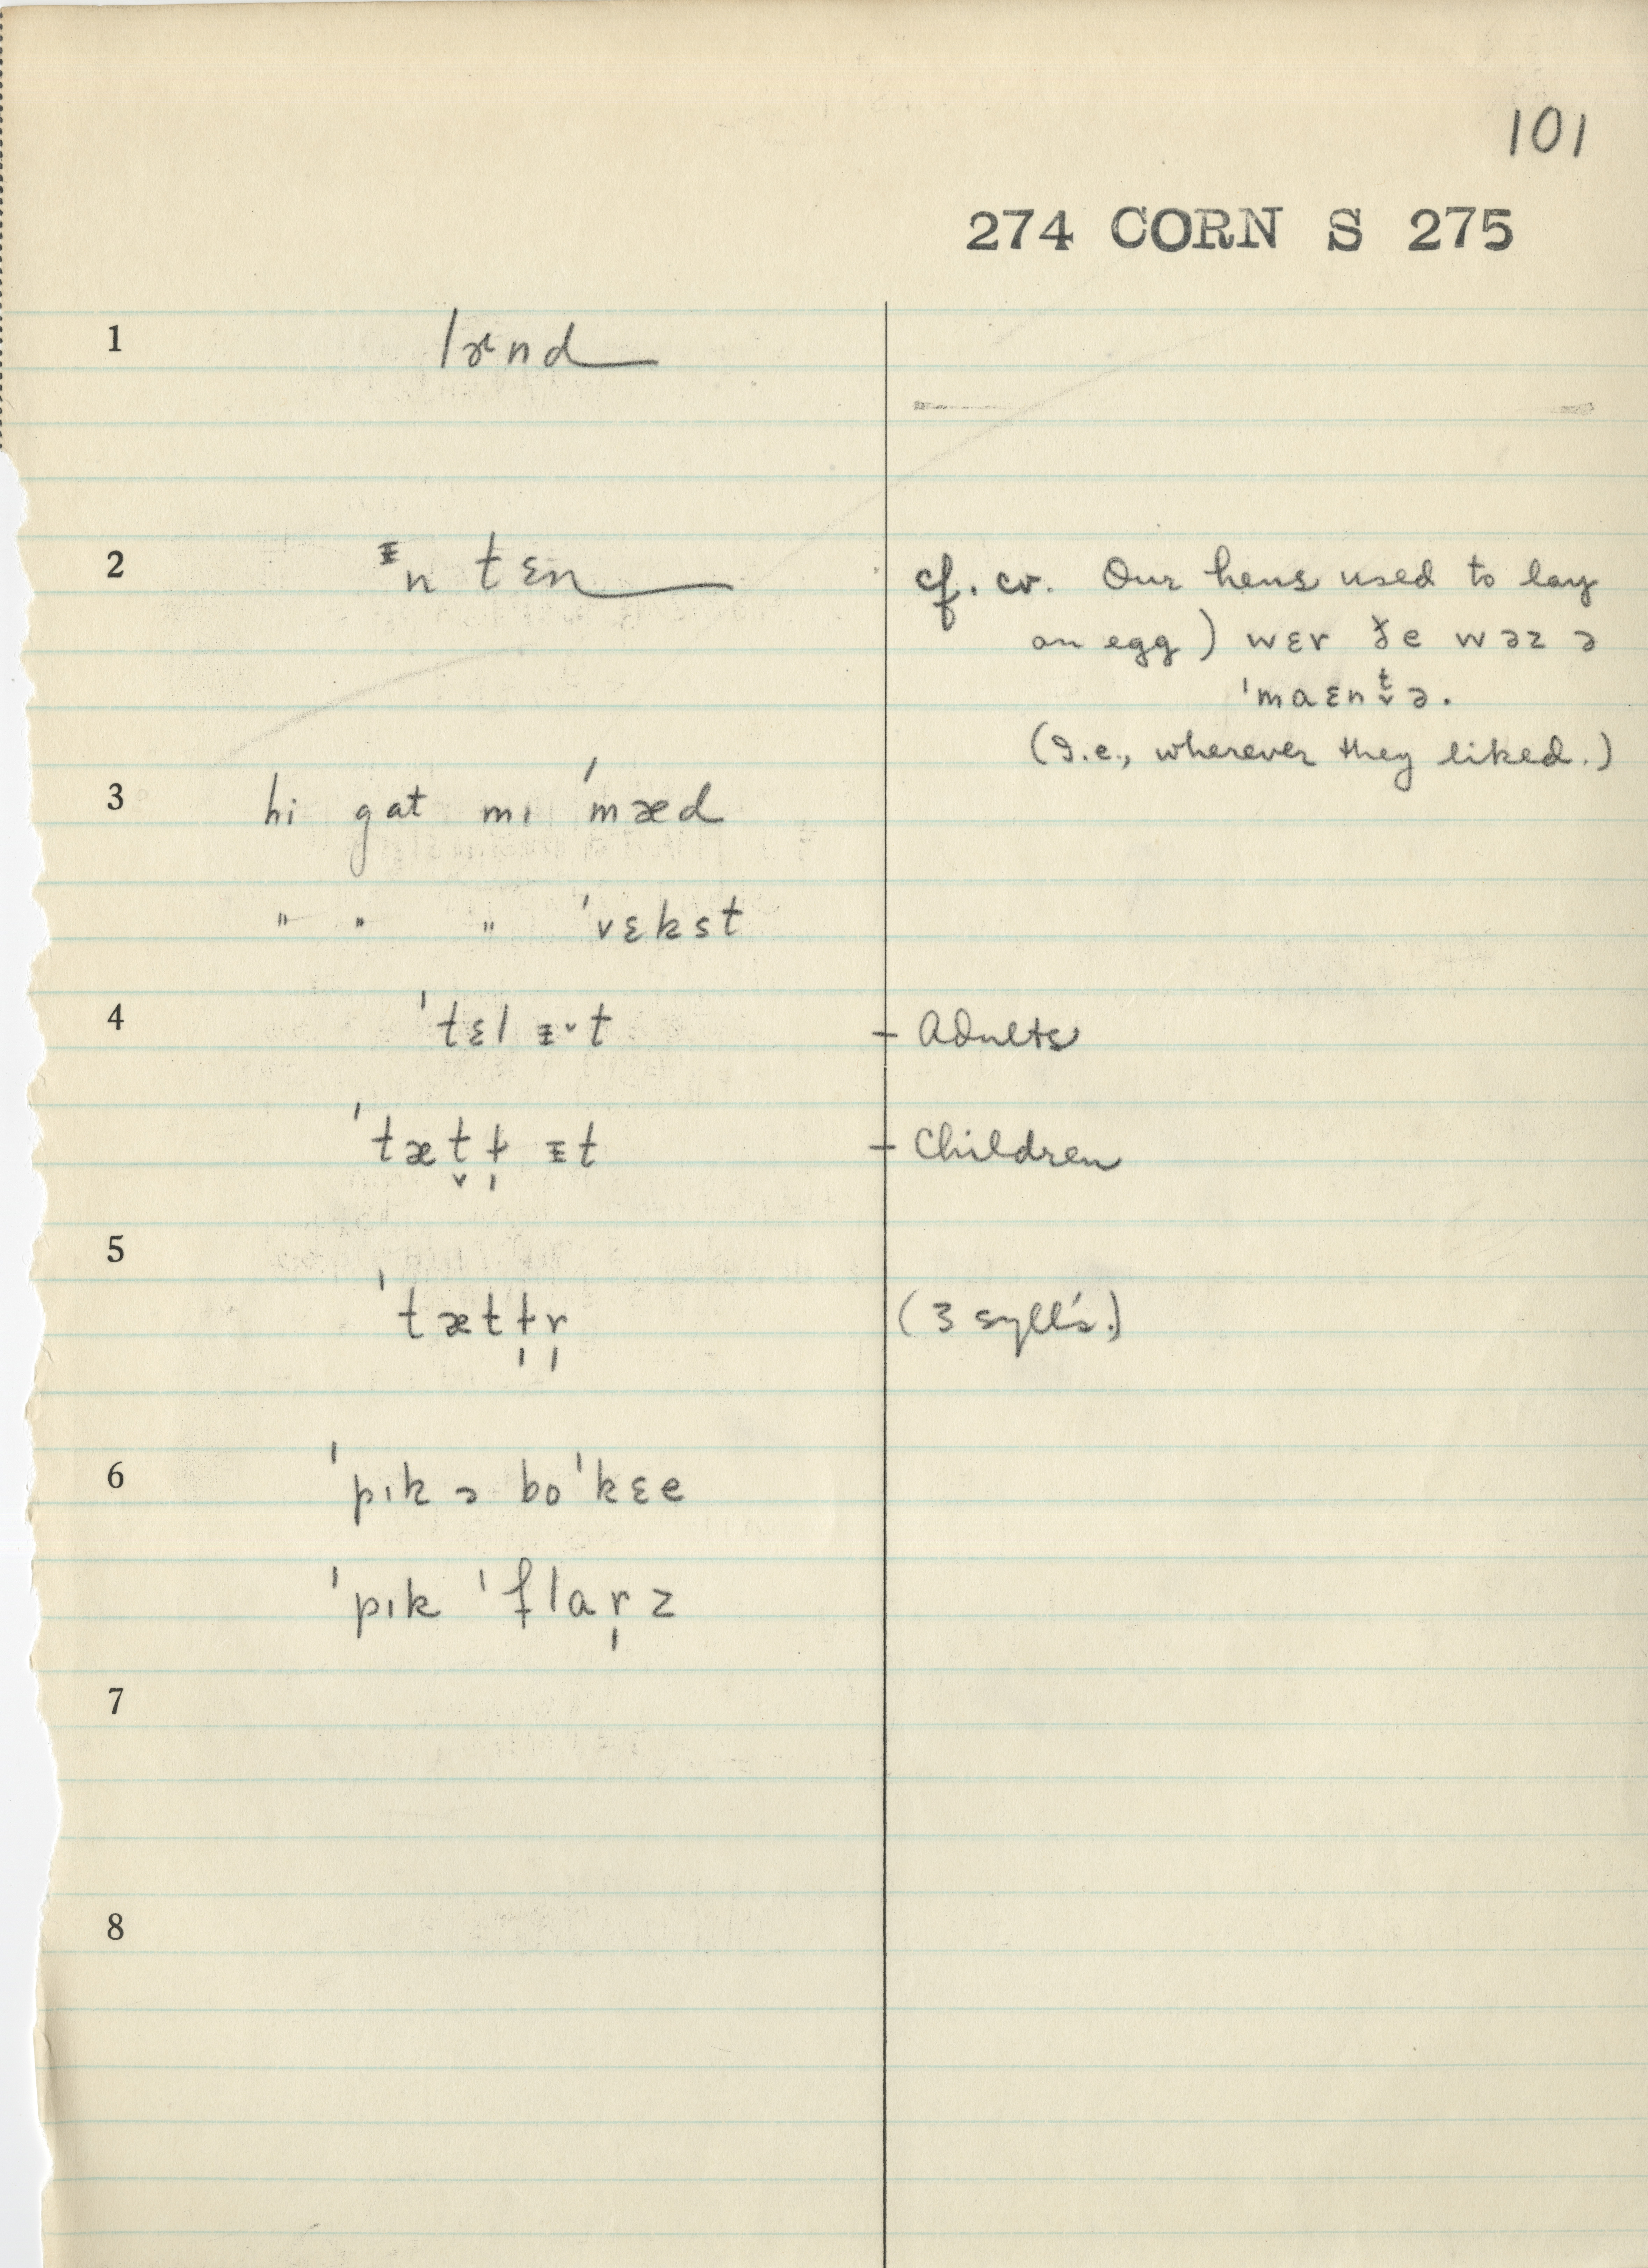 101
274 CORN S 275
1 lɚnd
2 ᵻn tɛn cf. cv. Our hens used to lay
an egg) wɛr ðe wəz ə
ˈmaɛnt̬ə.
(I.e., wherever they liked.)
3 hi gat mɪ ˈmæd
" " " ˈvɛkst
4 ˈtɛl ᵻ˅t – Adults
ˈtæt̬ɫ̩ ᵻt – Children
5
ˈtætɫ̩r̩ (3 syll's.)
6 ˈpɪk ə boˈkɛe
ˈpɪk ˈflar̩z
7
8